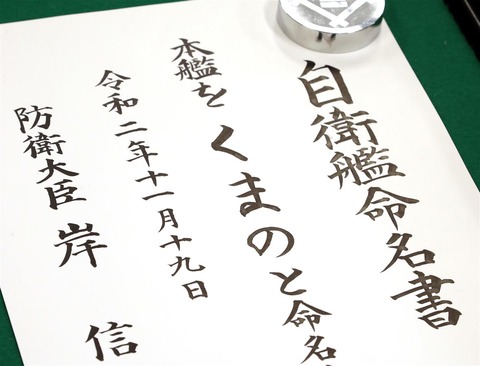 自衛艦命名書
本艦を
くまのと命名
令和二年十一月十九日
防衛大臣 岸 信